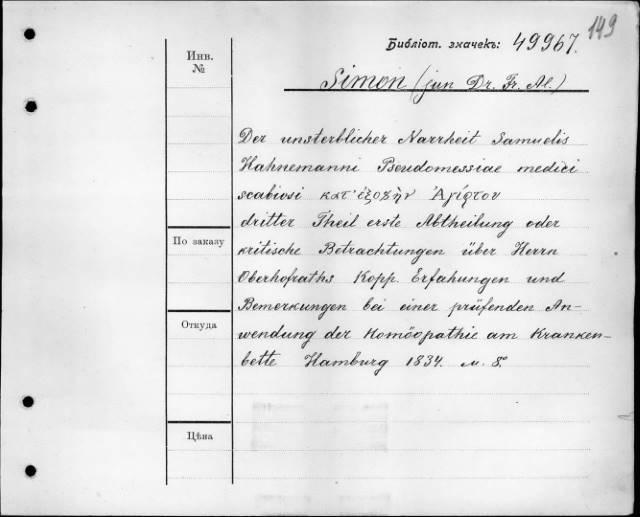 149
Библіот. значекъ: 49967.
Инв. №
Simon (jun Dr. Fr. Al.)
Der unsterblicher Narrheit Samuelis
Hahnemanni Pseudomessiae medici
scabiosi κατ' ἐξοζὴν Ἀγίφτου
dritter Theil erste Abtheilung oder
kritische Betrachtungen über Herrn
По заказу
Oberhofraths Kopp. Erfahungen und
Bemerkungen bei einer prüfenden An-
Откуда
wendung der Homöopathie am Kranken-
bette Hamburg 1834. м. 8°
Цѣна